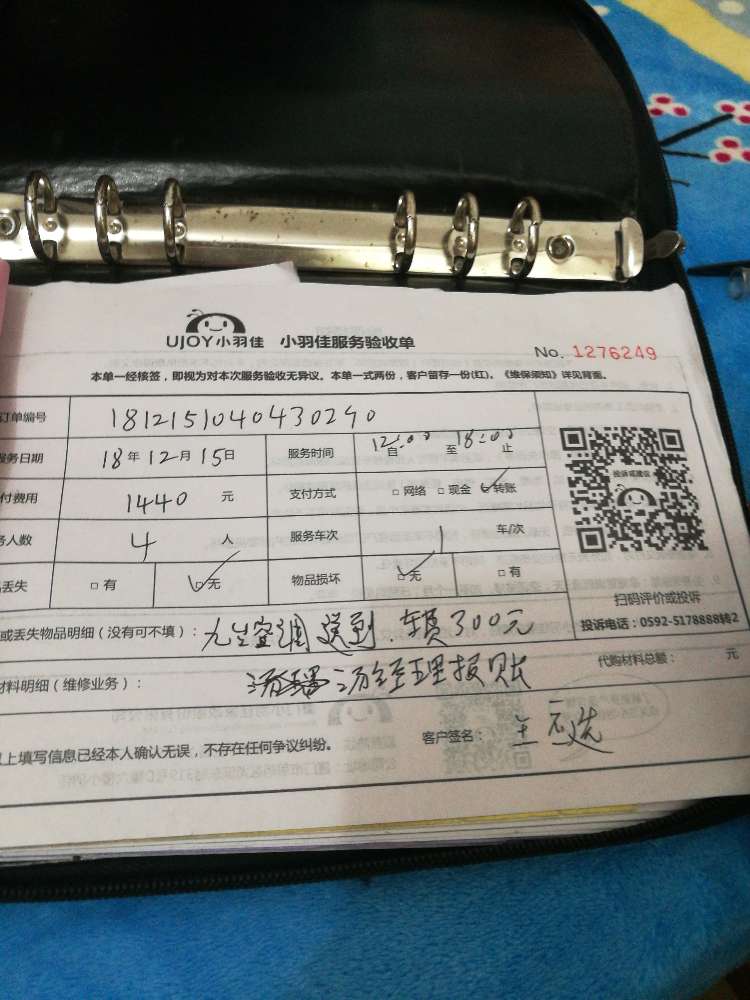 UJOY小羽佳 小羽佳服务验收单
No. 1276249
本单一经核签，即视为对本次服务验收无异议。本单一式两份，客户留存一份(红)。《维保须知》详见背面。
订单编号 1812151040430290
服务日期 18年12月15日 服务时间 12:00自 至18:00止
付费用 1440元 支付方式 □网络 □现金 □转账
投诉或建议
务人数 4人 服务车次 1车/次
丢失 □有 □无 物品损坏 □无 □有
扫码评价或投诉
投诉电话：0592-5178888转2
或丢失物品明细（没有可不填）： 空调 送到 300元
材料明细（维修业务）： 汤经理报账 代购材料总额： 元
上填写信息已经本人确认无误，不存在任何争议纠纷。 客户签名：